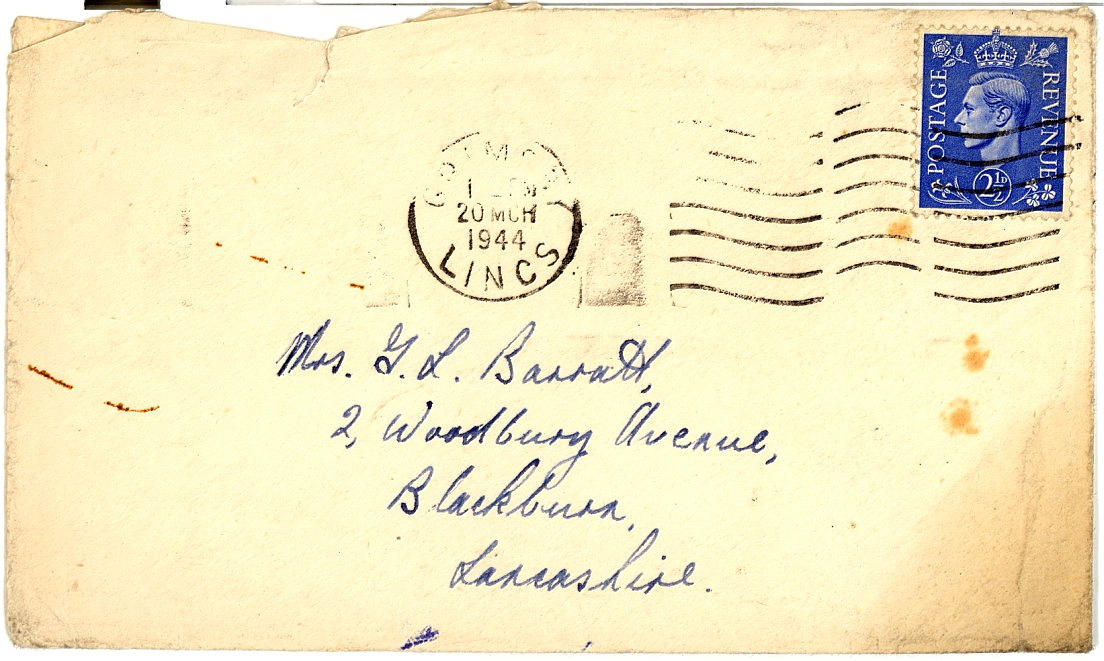 POSTAGE REVENUE
2½D
20 MCH
1944
LINCS
Mrs. G. L. Barratt,
2, Woodbury Avenue,
Blackburn,
Lancashire.